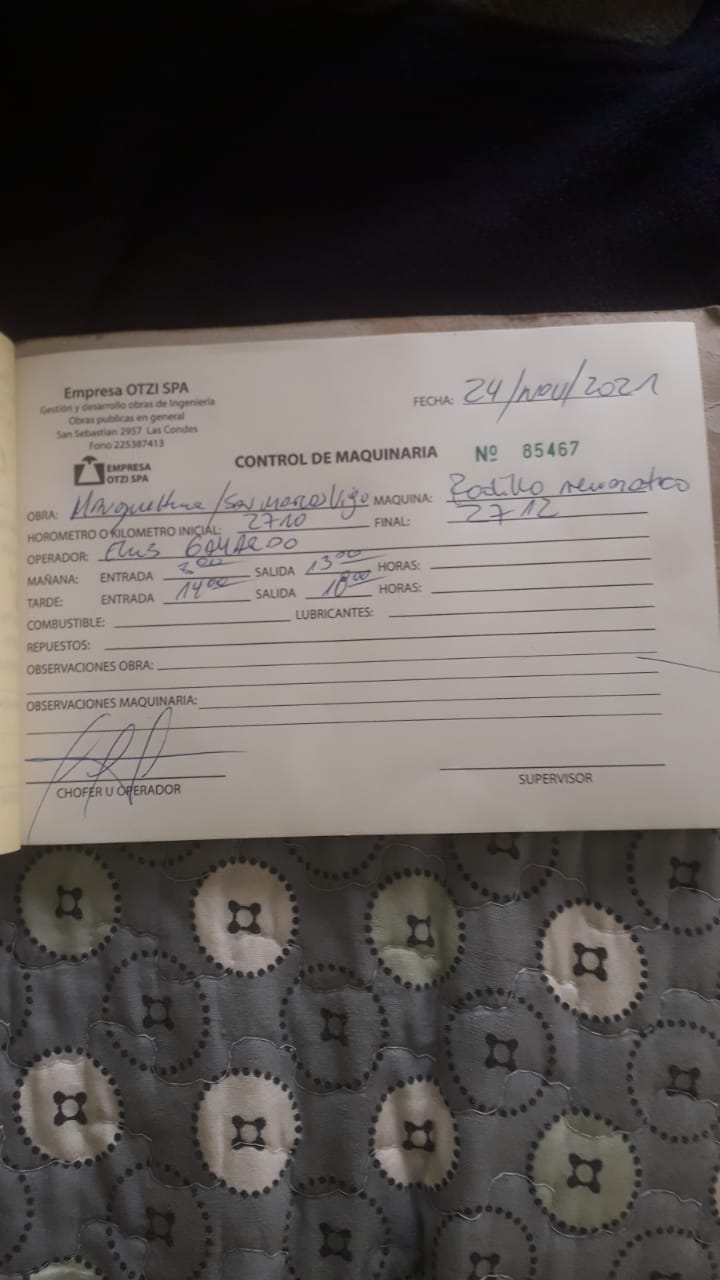 Empresa OTZI SPA
Gestión y desarrollo obras de Ingeniería
Obras publicas en general
San Sebastian 2957 Las Condes
Fono 225387413
EMPRESA
OTZI SPA
FECHA: 24/nov/2021
CONTROL DE MAQUINARIA Nº 85467
OBRA: MAQUINA: Rodillo neumatico
HOROMETRO O KILOMETRO INICIAL: 2710 FINAL: 2712
OPERADOR:
MAÑANA: ENTRADA 8:00 SALIDA 13:00 HORAS:
TARDE: ENTRADA 14:00 SALIDA 18:00 HORAS:
COMBUSTIBLE: LUBRICANTES:
REPUESTOS:
OBSERVACIONES OBRA:
OBSERVACIONES MAQUINARIA:
CHOFER U OPERADOR
SUPERVISOR